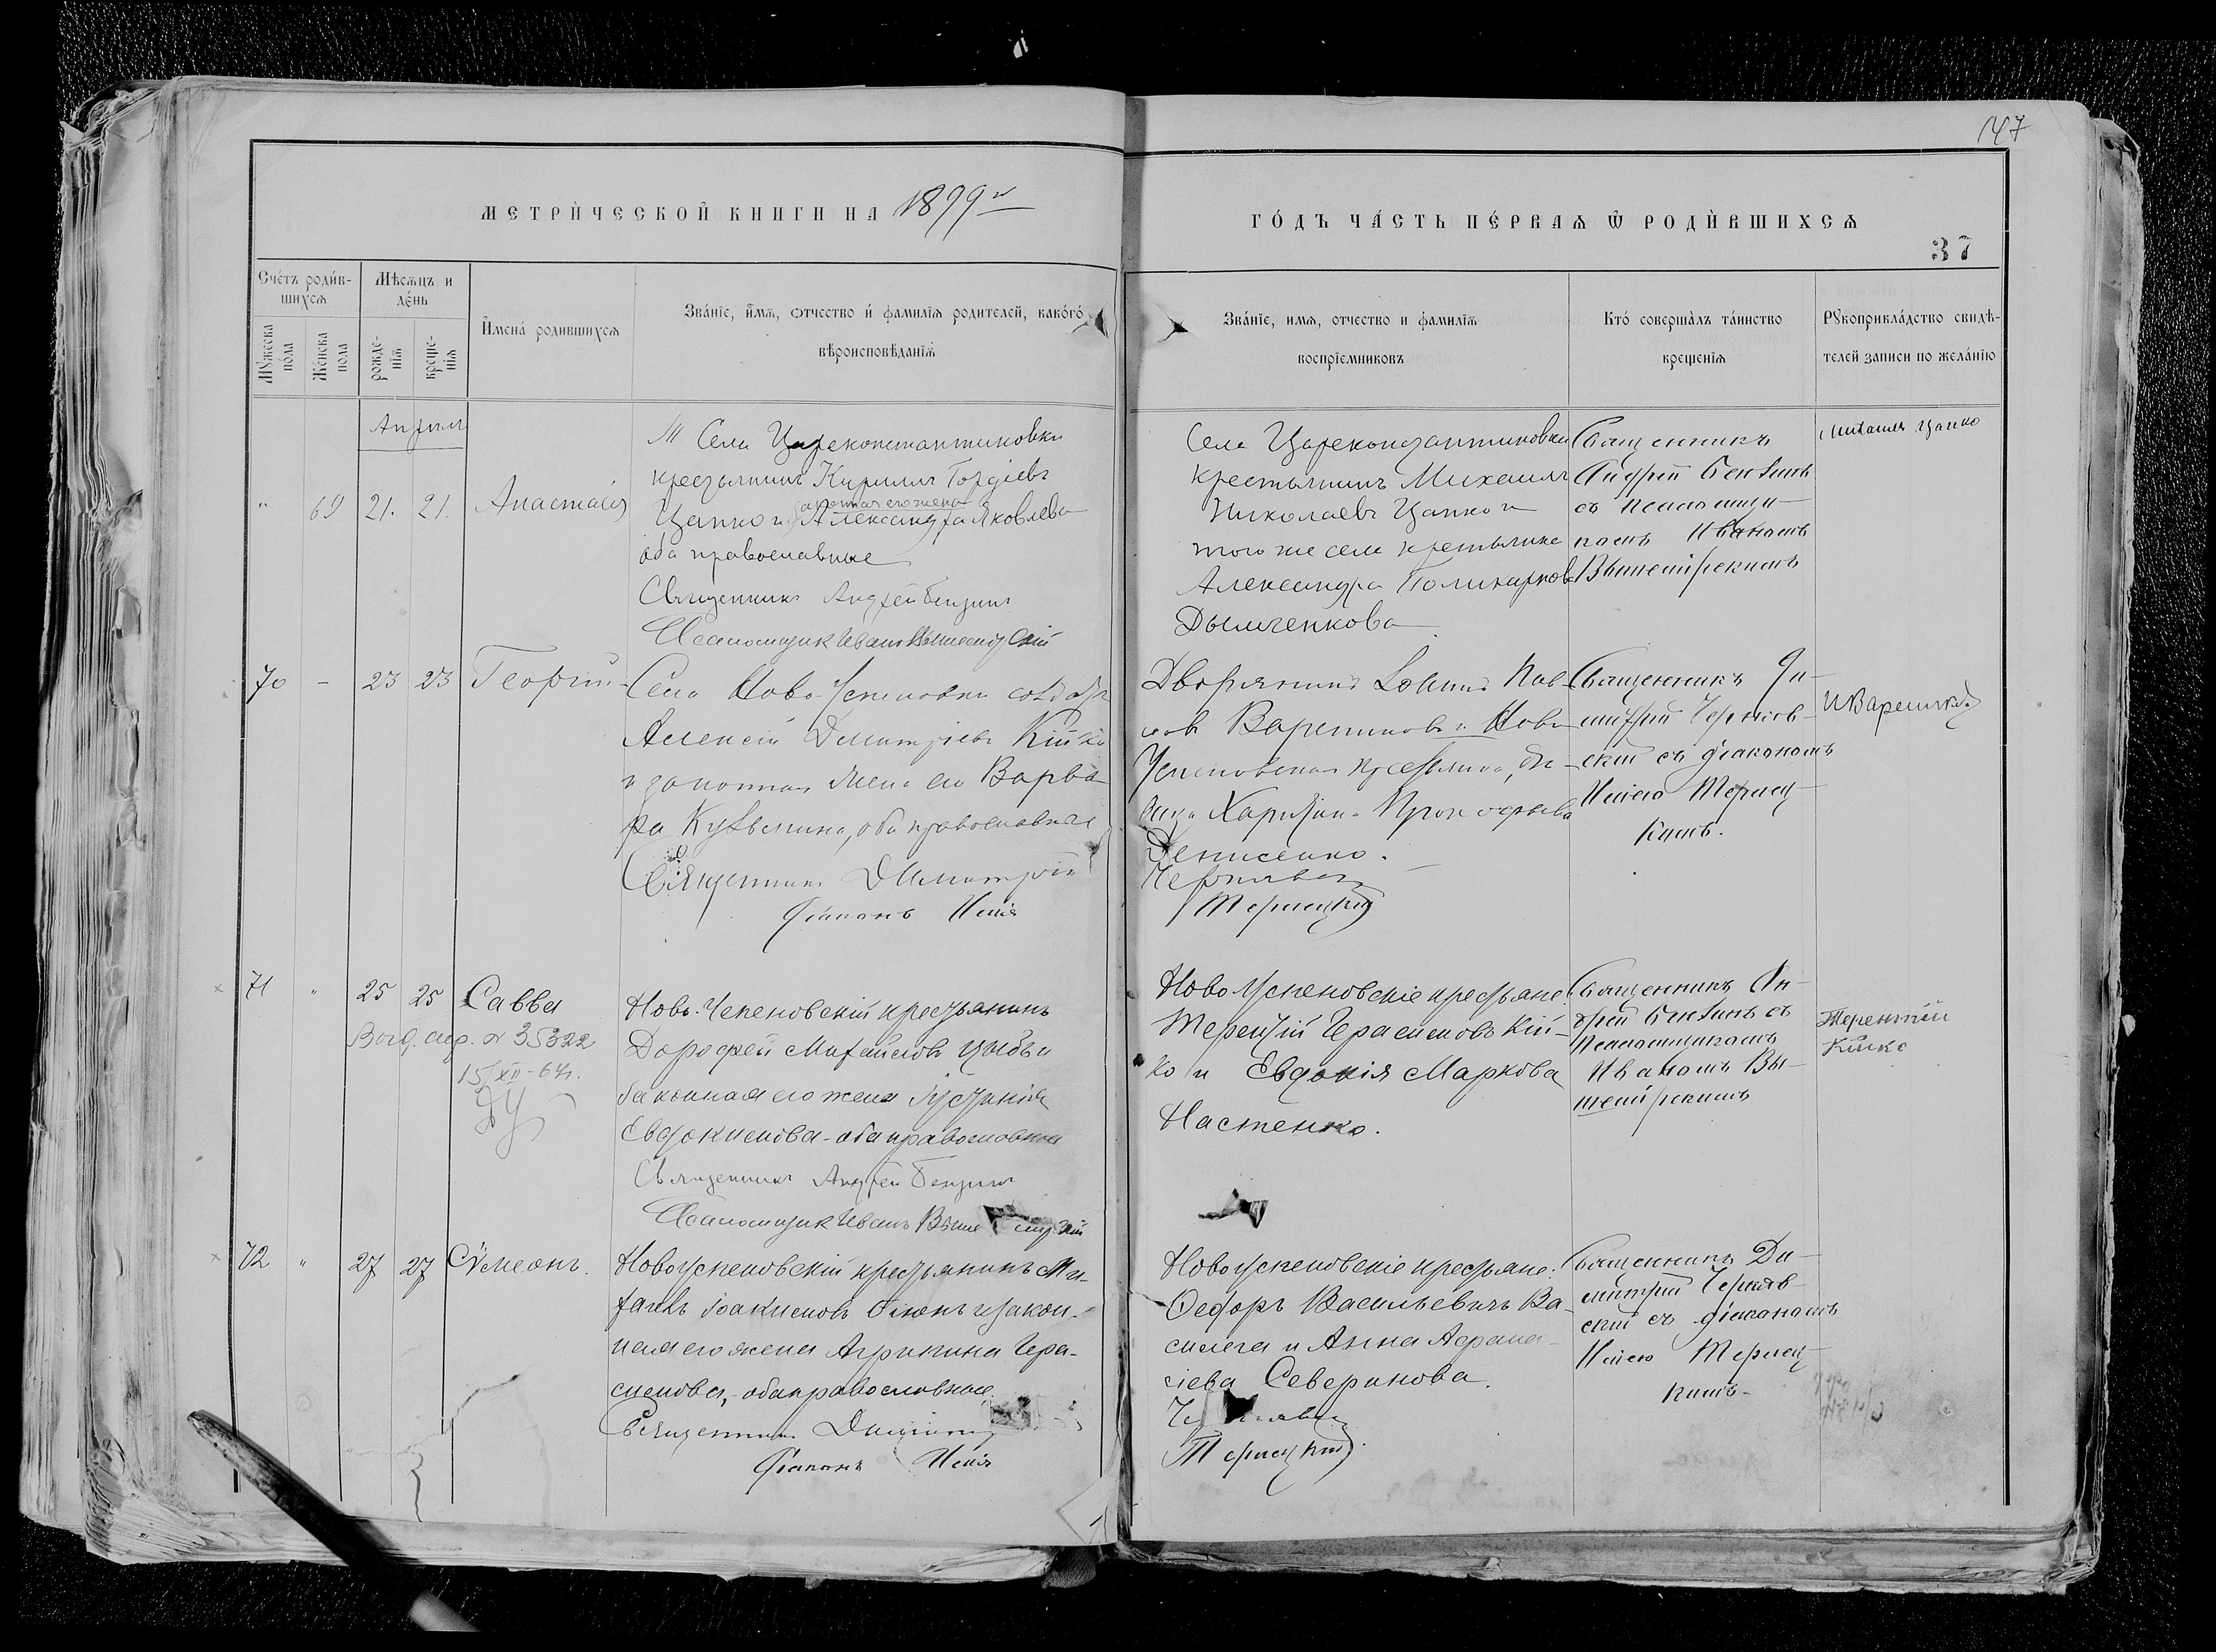 147
МЕТРИЧЕСКОЙ КНИГИ НА 1899 г
ГОДЪ ЧАСТЬ ПЕРВАЯ Ѿ РОДИВШИХСЯ
37
Счетъ родив-
шихся
Мѣсяцъ и
день
Мужеска
пола
Женска
пола
рожде-
нія
креще-
нія
Имена родившихся
Званіе, имя, отчество и фамилія родителей, какого
вѣроисповѣданія
Званіе, имя, отчество и фамилія
воспріемниковъ
Кто совершалъ таинство
крещенія
Рукоприкладство свидѣ-
телей записи по желанію
Апрѣль
" 69 21. 21. Анастасія
Села Цареконстантиновки
крестьянинъ Кириллъ Гордіевъ
законная его жена
Цапко и Александра Яковлева
оба православные
Священникъ Андрей
Псаломщикъ Иванъ
Села Цареконстантиновки
крестьянинъ Михаилъ
Николаевъ Цапко и
того же села крестьянка
Александра Поликарпова
Дымченкова
Священникъ
Андрей
съ псаломщи-
комъ Иваномъ
Михаилъ Цапко
70 - 23 23 Георгій
Села Ново-Успеновки солдатъ
Алексій Димитріевъ Кійко
и законная жена его Варва-
ра Кузьмина, оба православные
Священникъ Димитрій
Діаконъ Исаія
Дворянинъ Пав-
ловъ Варениковъ и Ново-
Успеновская крестьянка, дѣ-
вица Харитина Прокофьева
Денисенко.
Чернявскій
Терлецкій
Священникъ Ди-
митрій Черняв-
скій съ діакономъ
Исаіею Терлец-
кимъ.
71 " 25 25 Савва
№ 35322
15/XII-64г.
Ново-Успеновскій крестьянинъ
Дорофей Михайловъ Цыбъ и
законная его жена Іустинія
Евдокимова - оба православные
Священникъ Андрей
Псаломщикъ Иванъ
НовоУспеновскіе крестьяне:
Терентій Герасимовъ Кій-
ко и Евдокія Маркова
Настенко.
Священникъ Ан-
дрей съ
псаломщикомъ
Иваномъ Вы-
Терентій
Кійко
72 " 27 27 Сѵмеонъ.
Новоуспеновскій крестьянинъ Ми-
хаилъ Іоакимовъ и закон-
ная его жена Агрипина Гера-
симова, - оба православные.
Священникъ Димитрій
Діаконъ Исаія
Новоуспеновскіе крестьяне:
Ѳеодоръ Васильевичъ Ва-
силега и Анна Аѳана-
сіева Северинова.
Терлецкій
Священникъ Ди-
митрій Черняв-
скій съ діакономъ
Исаіею Терлец-
кимъ.